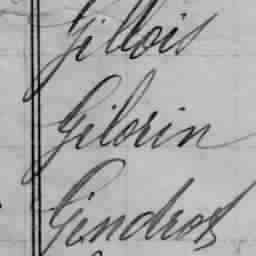 Gillois
Gilorin
Gendrot